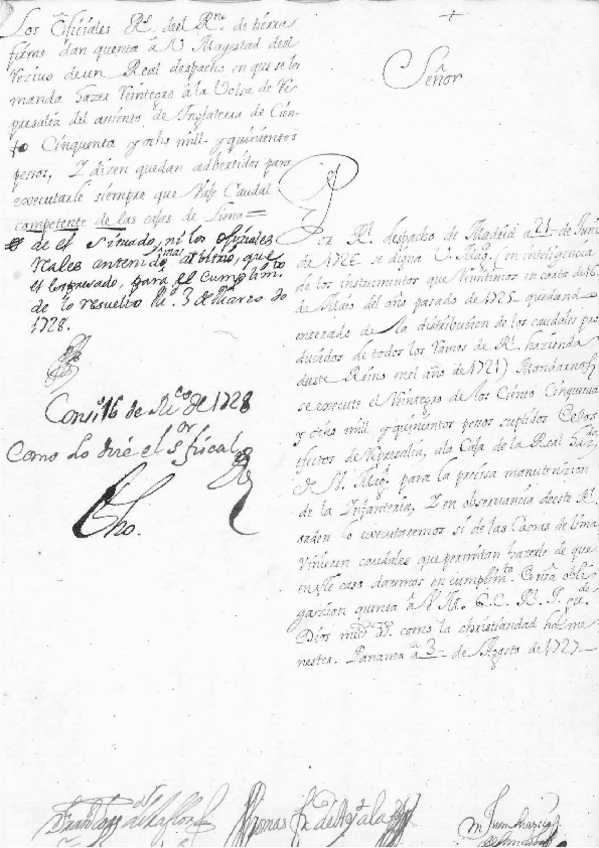 Los Oficiales Rs. del Rno. de tierra
firme dan quenta a V. Magestad del
recivo de un Real despacho en que se les
manda hazer reintegro à la Volsa de re
presalia del asiento de Inglaterra de Cien-
to Cinquenta y ocho mil y quinientos
pesos, Y dizen quedan adbertidos para
executarle siempre que vaje Caudal
competente de las cajas de Lima =
de el situado, ni los ofiziales
Reales antenido mas arbitrio, que
el expresado, para el cumplimto.
de lo resuelto Md. 3 de Marzo de
1728.
Conso. 16 de Mco. de 1728
Como lo dice el sor. fiscal
+
Señor
Por Rl. despacho de Madrid a 21 de Junio
de 1726 se digna V. Mag. (en inteligencia
de los instrumentos que remitimos en carta de 16
de Maio del año pasado de 1725 quedando
enterado de la distribucion de los caudales pro
ducidos de todos los ramos de Rl. hazienda
deste Reino en el año de 1721) Mandarnos
se execute el reintegro de los Ciento Cinquenta
y ocho mil y quinientos pesos suplidos de los
efectos de represalia, ala Caja de la Real haza.
de V. Mag. para la precisa manutenzion
de la Infanteria, Y en observancia deeste Rl.
orden lo executaremos si de las Caxas de Lima
vinieren caudales que permitan hazerle de que
en esse caso daremos en cumplimto. de nra. obli
gazion quenta à V. M. C. C. R. P. gude.
Dios ms. as. como la christiandad ha me
nester. Panama à 3 de Agosto de 1727